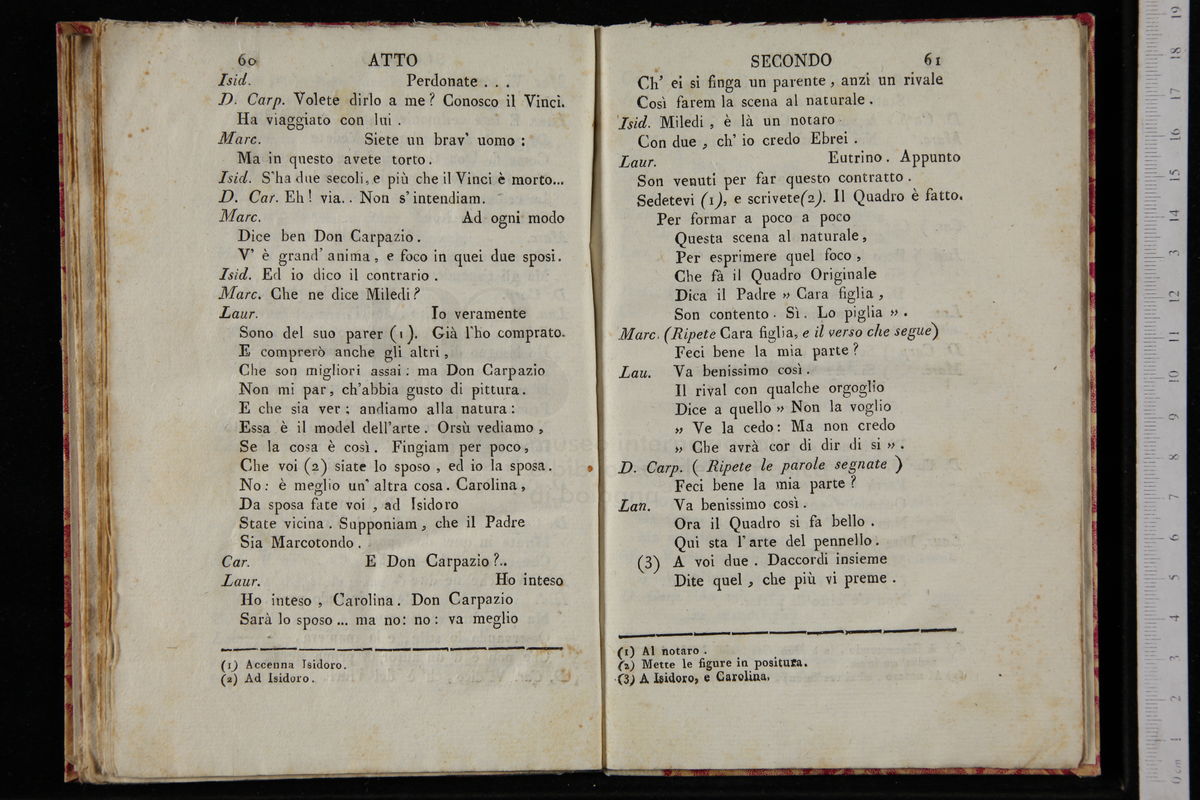 60 ATTO
Isid. Perdonate . . .
D. Carp. Volete dirlo a me? Conosco il Vinci.
Ha viaggiato con lui .
Marc. Siete un brav' uomo :
Ma in questo avete torto .
Isid. S'ha due secoli, e più che il Vinci è morto...
D. Car. Eh! via.. Non s'intendiam.
Marc. Ad ogni modo
Dice ben Don Carpazio .
V' è grand' anima , e foco in quei due sposi.
Isid. Ed io dico il contrario .
Marc. Che ne dice Miledi?
Laur. Io veramente
Sono del suo parer (1). Già l'ho comprato.
E comprerò anche gli altri ,
Che son migliori assai : ma Don Carpazio
Non mi par, ch'abbia gusto di pittura.
E che sia ver ; andiamo alla natura :
Essa è il model dell'arte . Orsù vediamo ,
Se la cosa è così . Fingiam per poco ,
Che voi (2) siate lo sposo , ed io la sposa .
No : è meglio un' altra cosa . Carolina ,
Da sposa fate voi , ad Isidoro
State vicina . Supponiam , che il Padre
Sia Marcotondo .
Car. E Don Carpazio ?..
Laur. Ho inteso
Ho inteso , Carolina . Don Carpazio
Sarà lo sposo ... ma no: no: va meglio
(1) Accenna Isidoro.
(2) Ad Isidoro .
SECONDO 61
Ch' ei si finga un parente , anzi un rivale
Così farem la scena al naturale .
Isid. Miledi , è là un notaro
Con due , ch' io credo Ebrei .
Laur. Eutrino . Appunto
Son venuti per far questo contratto .
Sedetevi (1), e scrivete(2). Il Quadro è fatto.
Per formar a poco a poco
Questa scena al naturale ,
Per esprimere quel foco ,
Che fà il Quadro Originale
Dica il Padre » Cara figlia ,
Son contento . Sì . Lo piglia » .
Marc. (Ripete Cara figlia, e il verso che segue)
Feci bene la mia parte ?
Lau. Va benissimo così .
Il rival con qualche orgoglio
Dice a quello » Non la voglio
» Ve la cedo : Ma non credo
» Che avrà cor di dir di si » .
D. Carp. ( Ripete le parole segnate )
Feci bene la mia parte ?
Lan. Va benissimo così .
Ora il Quadro si fa bello .
Qui sta l'arte del pennello .
(3) A voi due . Daccordi insieme
Dite quel , che più vi preme .
(1) Al notaro .
(2) Mette le figure in positura.
(3) A Isidoro, e Carolina.